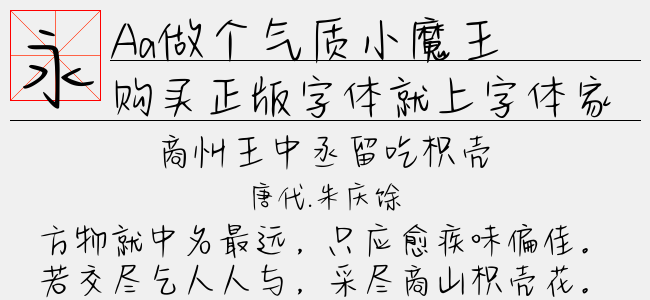 永
Aa做个气质小魔王
购买正版字体就上字体家
商州王中丞留吃枳壳
唐代.朱庆馀
方物就中名最远，只应愈疾味偏佳。
若交尽乞人人与，采尽商山枳壳花。